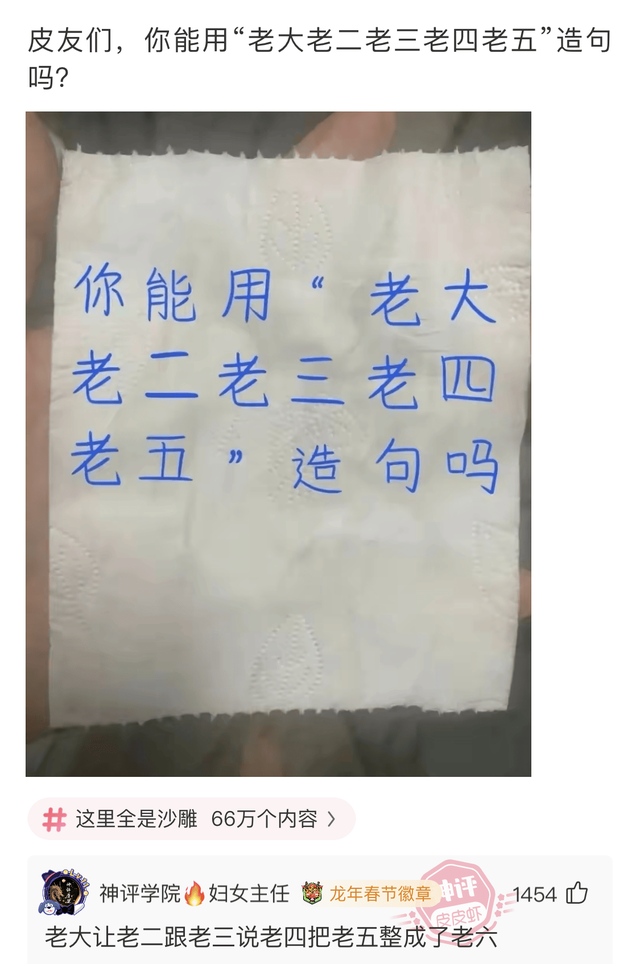 皮友们，你能用“老大老二老三老四老五”造句
吗?
你能用“老大
老二老三老四
老五”造句吗
这里全是沙雕 66万个内容
神评学院🔥妇女主任 龙年春节徽章 1454
神评
皮皮虾
老大让老二跟老三说老四把老五整成了老六